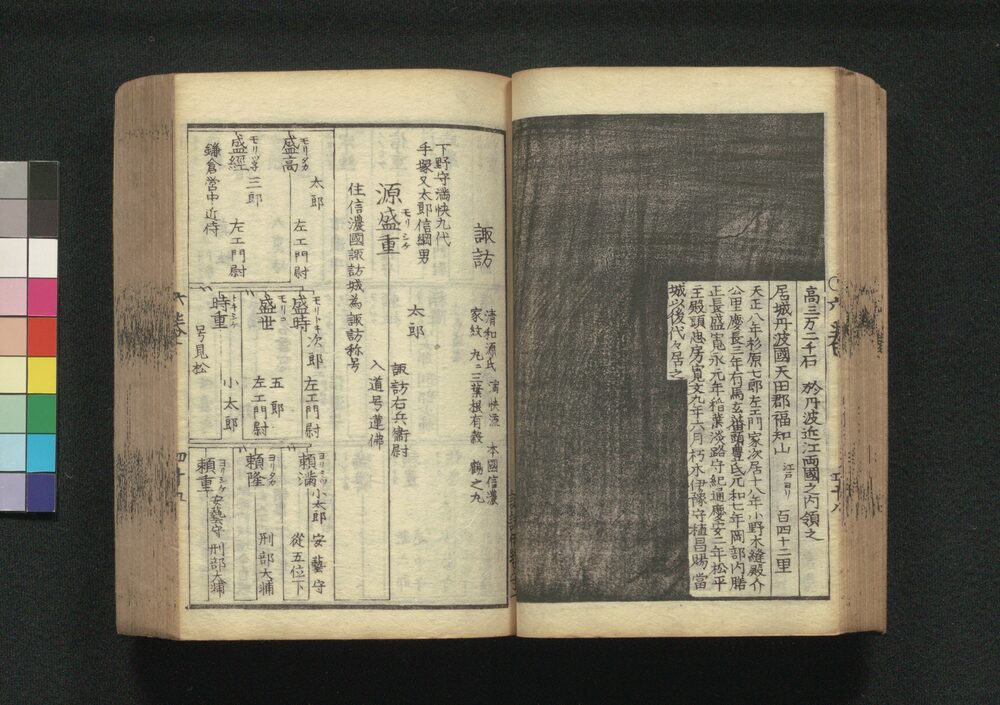 高三万二千石 於丹波近江両國之内領之
居城丹波國天田郡福知山 江戸ヨリ 百四十二里
天正八年杉原七郎左エ門家次居十八年小野木縫殿介
公里慶長三年有馬玄蕃頭豊氏元和七年岡部内膳
正長盛寛永元年稻葉淡路守紀通慶安二年松平
主殿頭忠房寛文九年六月朽木伊豫守稙昌賜當
城以後代々居之
諏訪
清和源氏 満快流 本國信濃
家紋 丸ニ三葉根有穀 鶴之丸
下野守満快九代
手塚又太郎信綱男
源盛重
モリシケ
太郎
諏訪右兵衞尉
入道号蓮佛
住信濃國諏訪城為諏訪称号
盛高
モリタカ
太郎
左エ門尉
盛經
モリツネ
三郎
左エ門尉
鎌倉営中近侍
盛時
モリトキ
次郎
左エ門尉
盛世
モリヨ
五郎
左エ門尉
時重
トキシケ
小太郎
号見松
頼満
ヨリミツ
小太郎
安藝守
從五位下
頼隆
ヨリタカ
刑部大輔
頼重
ヨリシケ
安藝守
刑部大輔
四十五